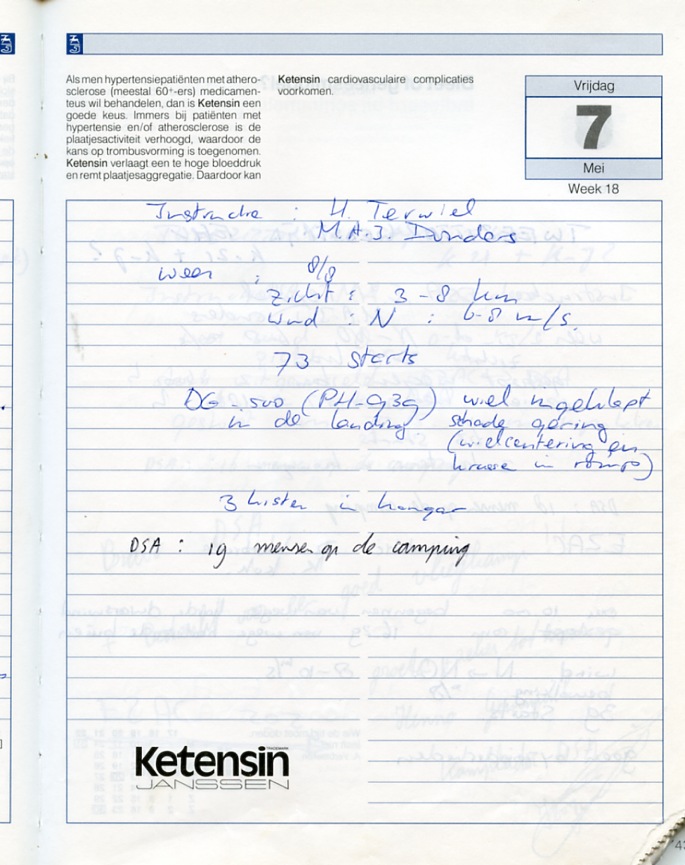 Als men hypertensiepatiënten met athero-
sclerose (meestal 60+-ers) medicamen-
teus wil behandelen, dan is Ketensin een
goede keus. Immers bij patiënten met
hypertensie en/of atherosclerose is de
plaatjesactiviteit verhoogd, waardoor de
kans op trombusvorming is toegenomen.
Ketensin verlaagt een te hoge bloeddruk
en remt plaatjesaggregatie. Daardoor kan
Ketensin cardiovasculaire complicaties
voorkomen.
Vrijdag
7
Mei
Week 18
Instructie : H. Terwiel
M.A.J. Donders
weer : 8/8
zicht : 3-8 km
wind : N : 6-8 m/s.
73 starts
DG-500 (PH-939) wiel ingeklapt
in de landing schade gering
(wielcentering en
krasse in romp)
3 kisten in hangar
DSA : 19 mense op de camping
Ketensin
TRADEMARK
JANSSEN